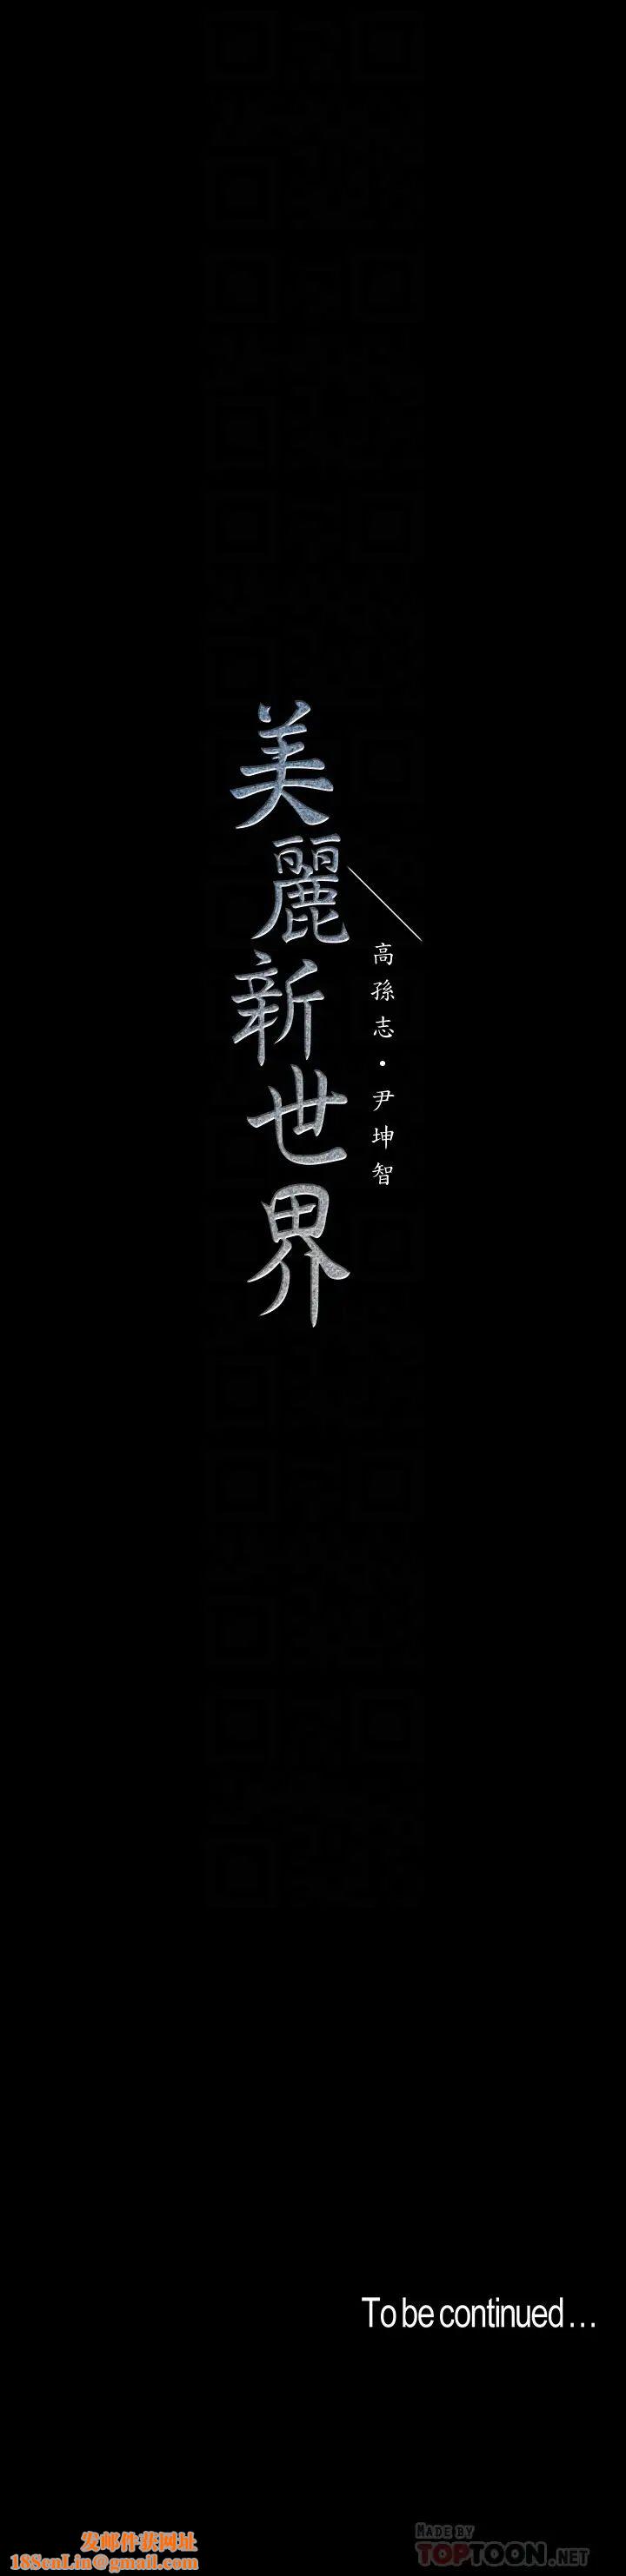 美麗新世界
高孫志・尹坤智
To be continued...
发邮件获网址
18SenLin@gmail.com
MADE BY
TOPTOON.NET